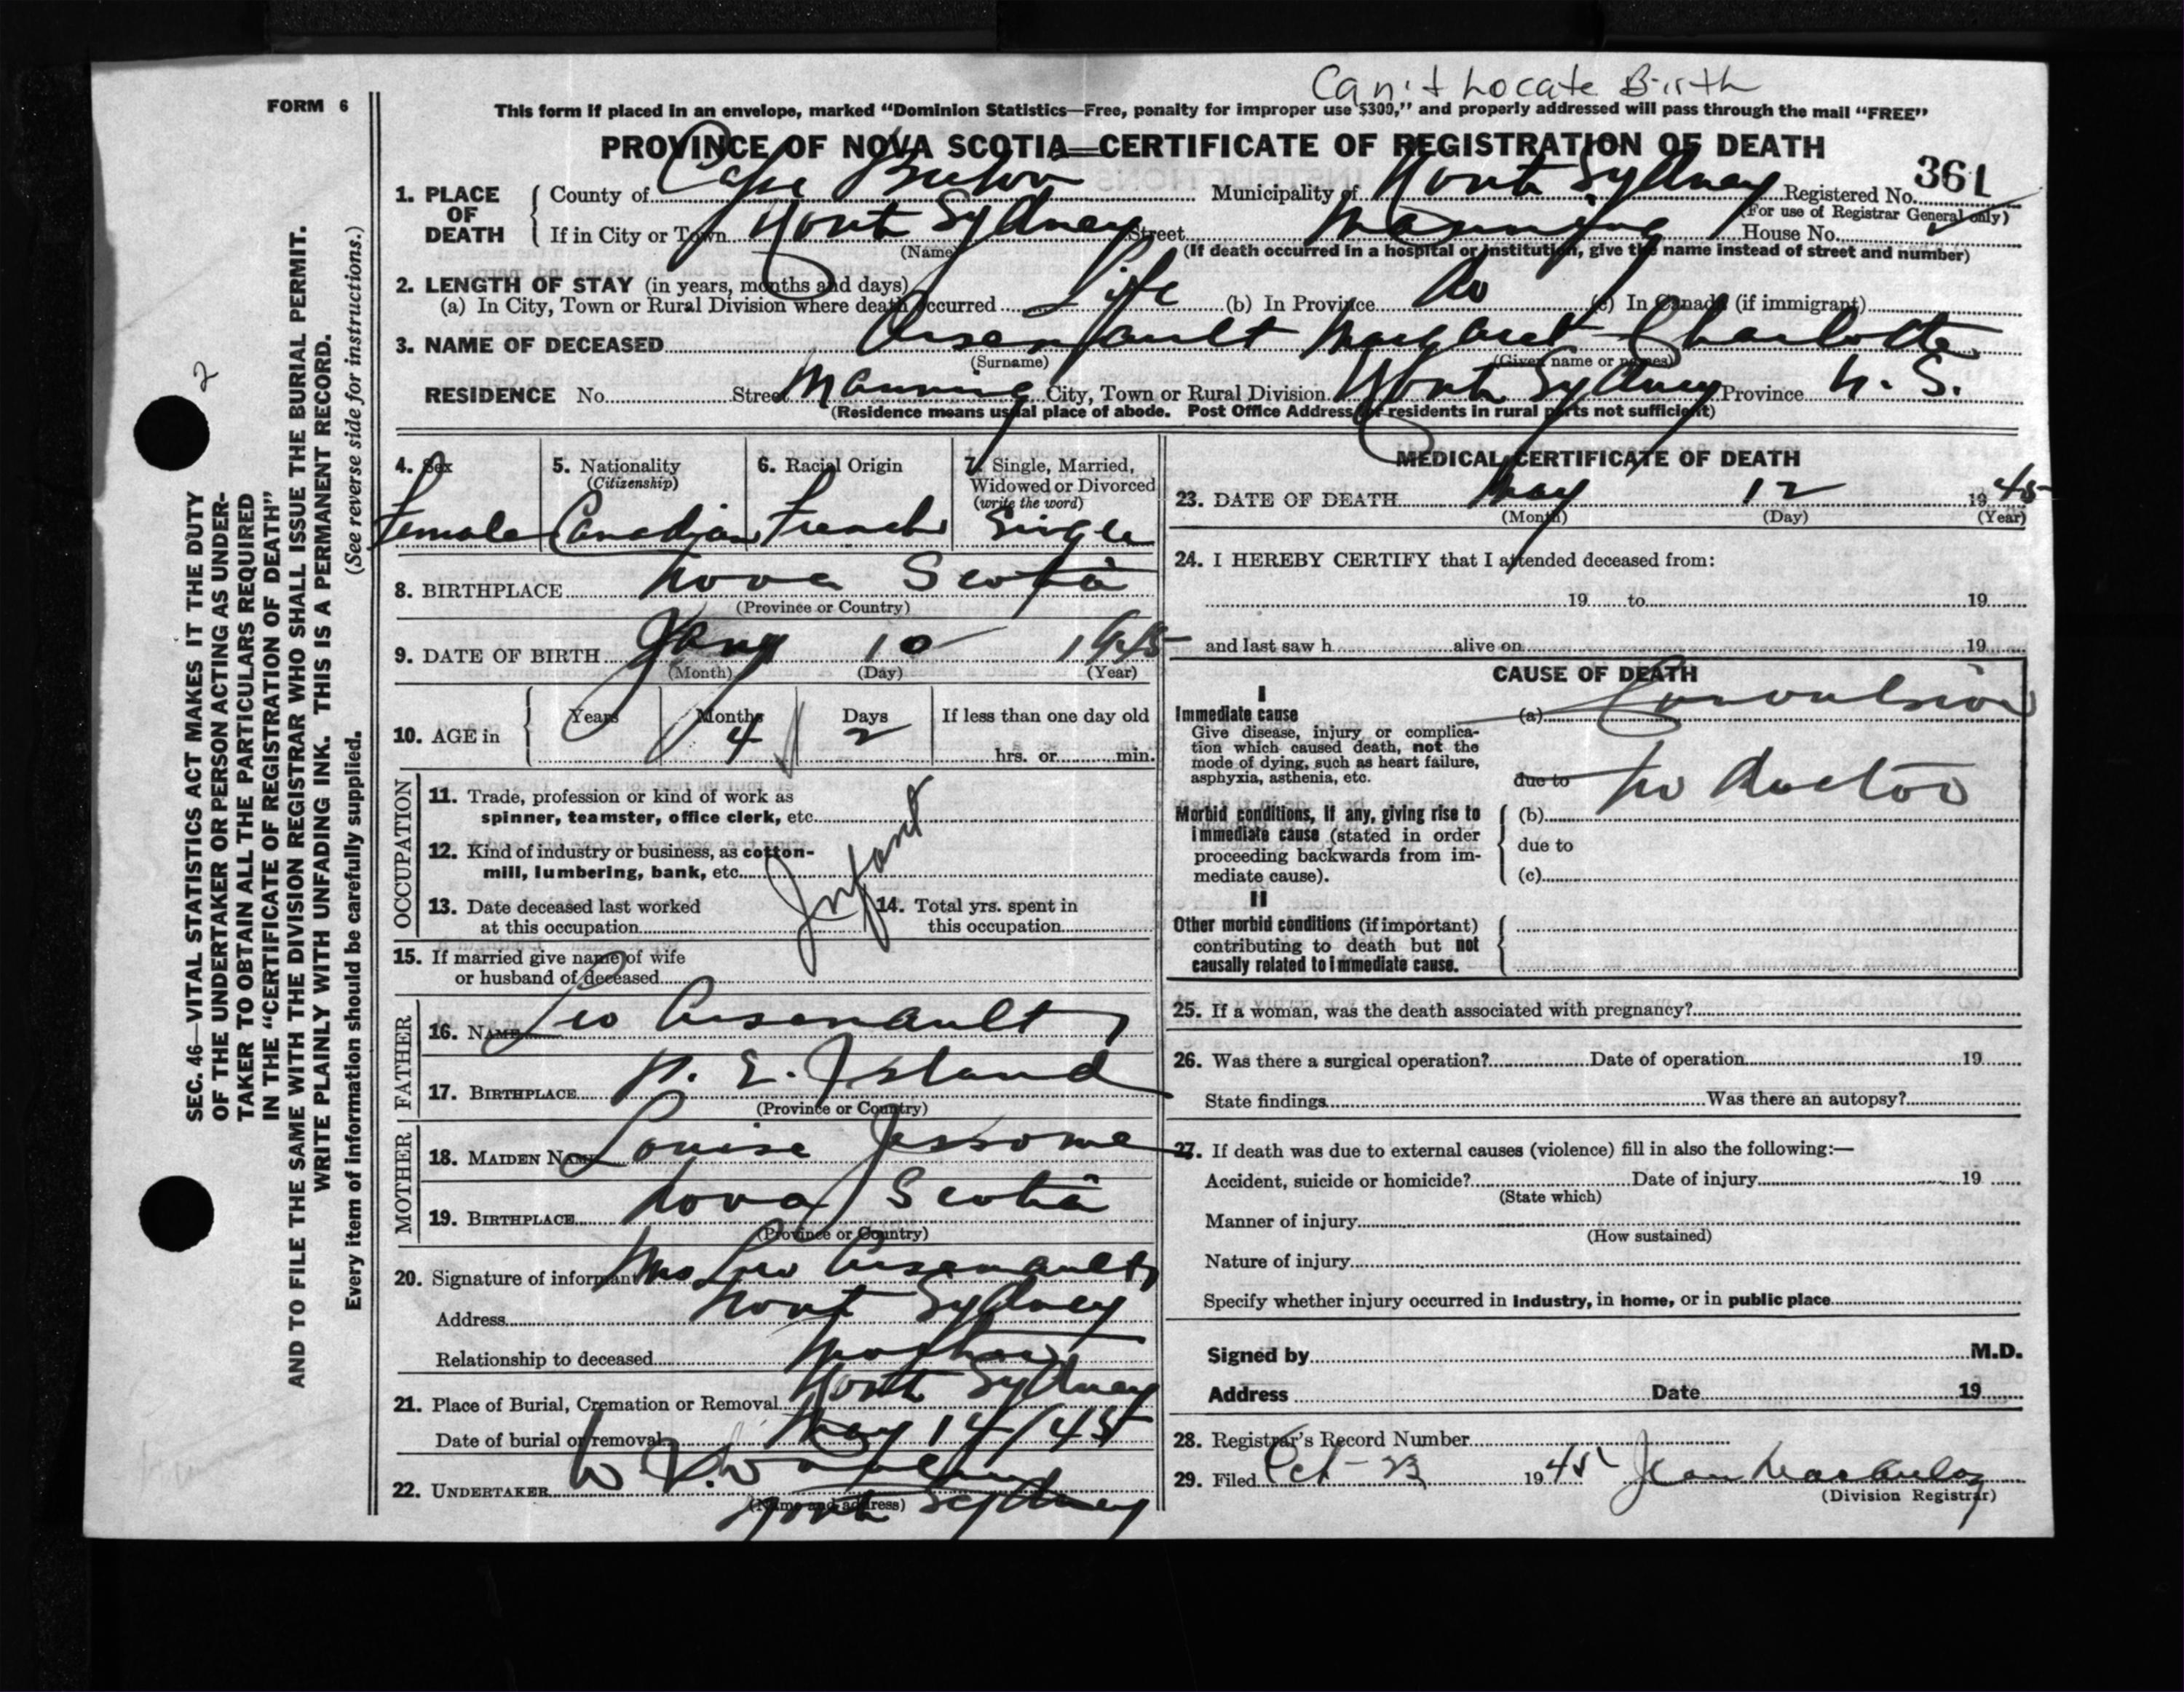 Can't Locate Birth
FORM 6
This form if placed in an envelope, marked "Dominion Statistics—Free, penalty for improper use $300," and properly addressed will pass through the mail "FREE"
PROVINCE OF NOVA SCOTIA—CERTIFICATE OF REGISTRATION OF DEATH
361
1. PLACE OF DEATH { County of Cape Breton Municipality of North Sydney Registered No.
(For use of Registrar General only)
If in City or Town North Sydney Street Manning House No.
(Name) (If death occurred in a hospital or institution, give the name instead of street and number)
2. LENGTH OF STAY (in years, months and days)
(a) In City, Town or Rural Division where death occurred Life (b) In Province Do (c) In Canada (if immigrant)
3. NAME OF DECEASED Arsenault Margaret Charlotte
(Surname) (Given name or names)
RESIDENCE No. Street Manning City, Town or Rural Division North Sydney Province N. S.
(Residence means usual place of abode. Post Office Address for residents in rural parts not sufficient)
4. Sex 5. Nationality 6. Racial Origin 7. Single, Married,
(Citizenship) Widowed or Divorced
(write the word)
Female Canadian French Single
8. BIRTHPLACE Nova Scotia
(Province or Country)
9. DATE OF BIRTH Jany 10 1945
(Month) (Day) (Year)
10. AGE in { Years Months Days If less than one day old
4 2
hrs. or min.
OCCUPATION
11. Trade, profession or kind of work as
spinner, teamster, office clerk, etc.
12. Kind of industry or business, as cotton-
mill, lumbering, bank, etc.
Infant
13. Date deceased last worked 14. Total yrs. spent in
at this occupation this occupation
15. If married give name of wife
or husband of deceased
FATHER
16. NAME Leo Arsenault
17. BIRTHPLACE P. E. Island
(Province or Country)
MOTHER
18. MAIDEN NAME Louise Jessome
19. BIRTHPLACE Nova Scotia
(Province or Country)
20. Signature of informant Mrs Leo Arsenault
Address North Sydney
Relationship to deceased Mother
21. Place of Burial, Cremation or Removal North Sydney
Date of burial or removal May 14/45
22. UNDERTAKER
(Name and address) North Sydney
MEDICAL CERTIFICATE OF DEATH
23. DATE OF DEATH May 12 1945
(Month) (Day) (Year)
24. I HEREBY CERTIFY that I attended deceased from:
19 to 19
and last saw h alive on 19
CAUSE OF DEATH
I
Immediate cause (a) Convulsion
Give disease, injury or complica-
tion which caused death, not the
mode of dying, such as heart failure,
asphyxia, asthenia, etc.
due to No doctor
Morbid conditions, if any, giving rise to (b)
immediate cause (stated in order due to
proceeding backwards from im-
mediate cause). (c)
II
Other morbid conditions (if important)
contributing to death but not
causally related to immediate cause.
25. If a woman, was the death associated with pregnancy?
26. Was there a surgical operation? Date of operation 19
State findings Was there an autopsy?
27. If death was due to external causes (violence) fill in also the following:—
Accident, suicide or homicide? Date of injury 19
(State which)
Manner of injury
(How sustained)
Nature of injury
Specify whether injury occurred in Industry, in home, or in public place
Signed by M.D.
Address Date 19
28. Registrar's Record Number
29. Filed Oct 23 1945 Jean
(Division Registrar)
2
SEC. 46—VITAL STATISTICS ACT MAKES IT THE DUTY
OF THE UNDERTAKER OR PERSON ACTING AS UNDER-
TAKER TO OBTAIN ALL THE PARTICULARS REQUIRED
IN THE "CERTIFICATE OF REGISTRATION OF DEATH"
AND TO FILE THE SAME WITH THE DIVISION REGISTRAR WHO SHALL ISSUE THE BURIAL PERMIT.
WRITE PLAINLY WITH UNFADING INK. THIS IS A PERMANENT RECORD.
Every item of information should be carefully supplied. (See reverse side for instructions.)